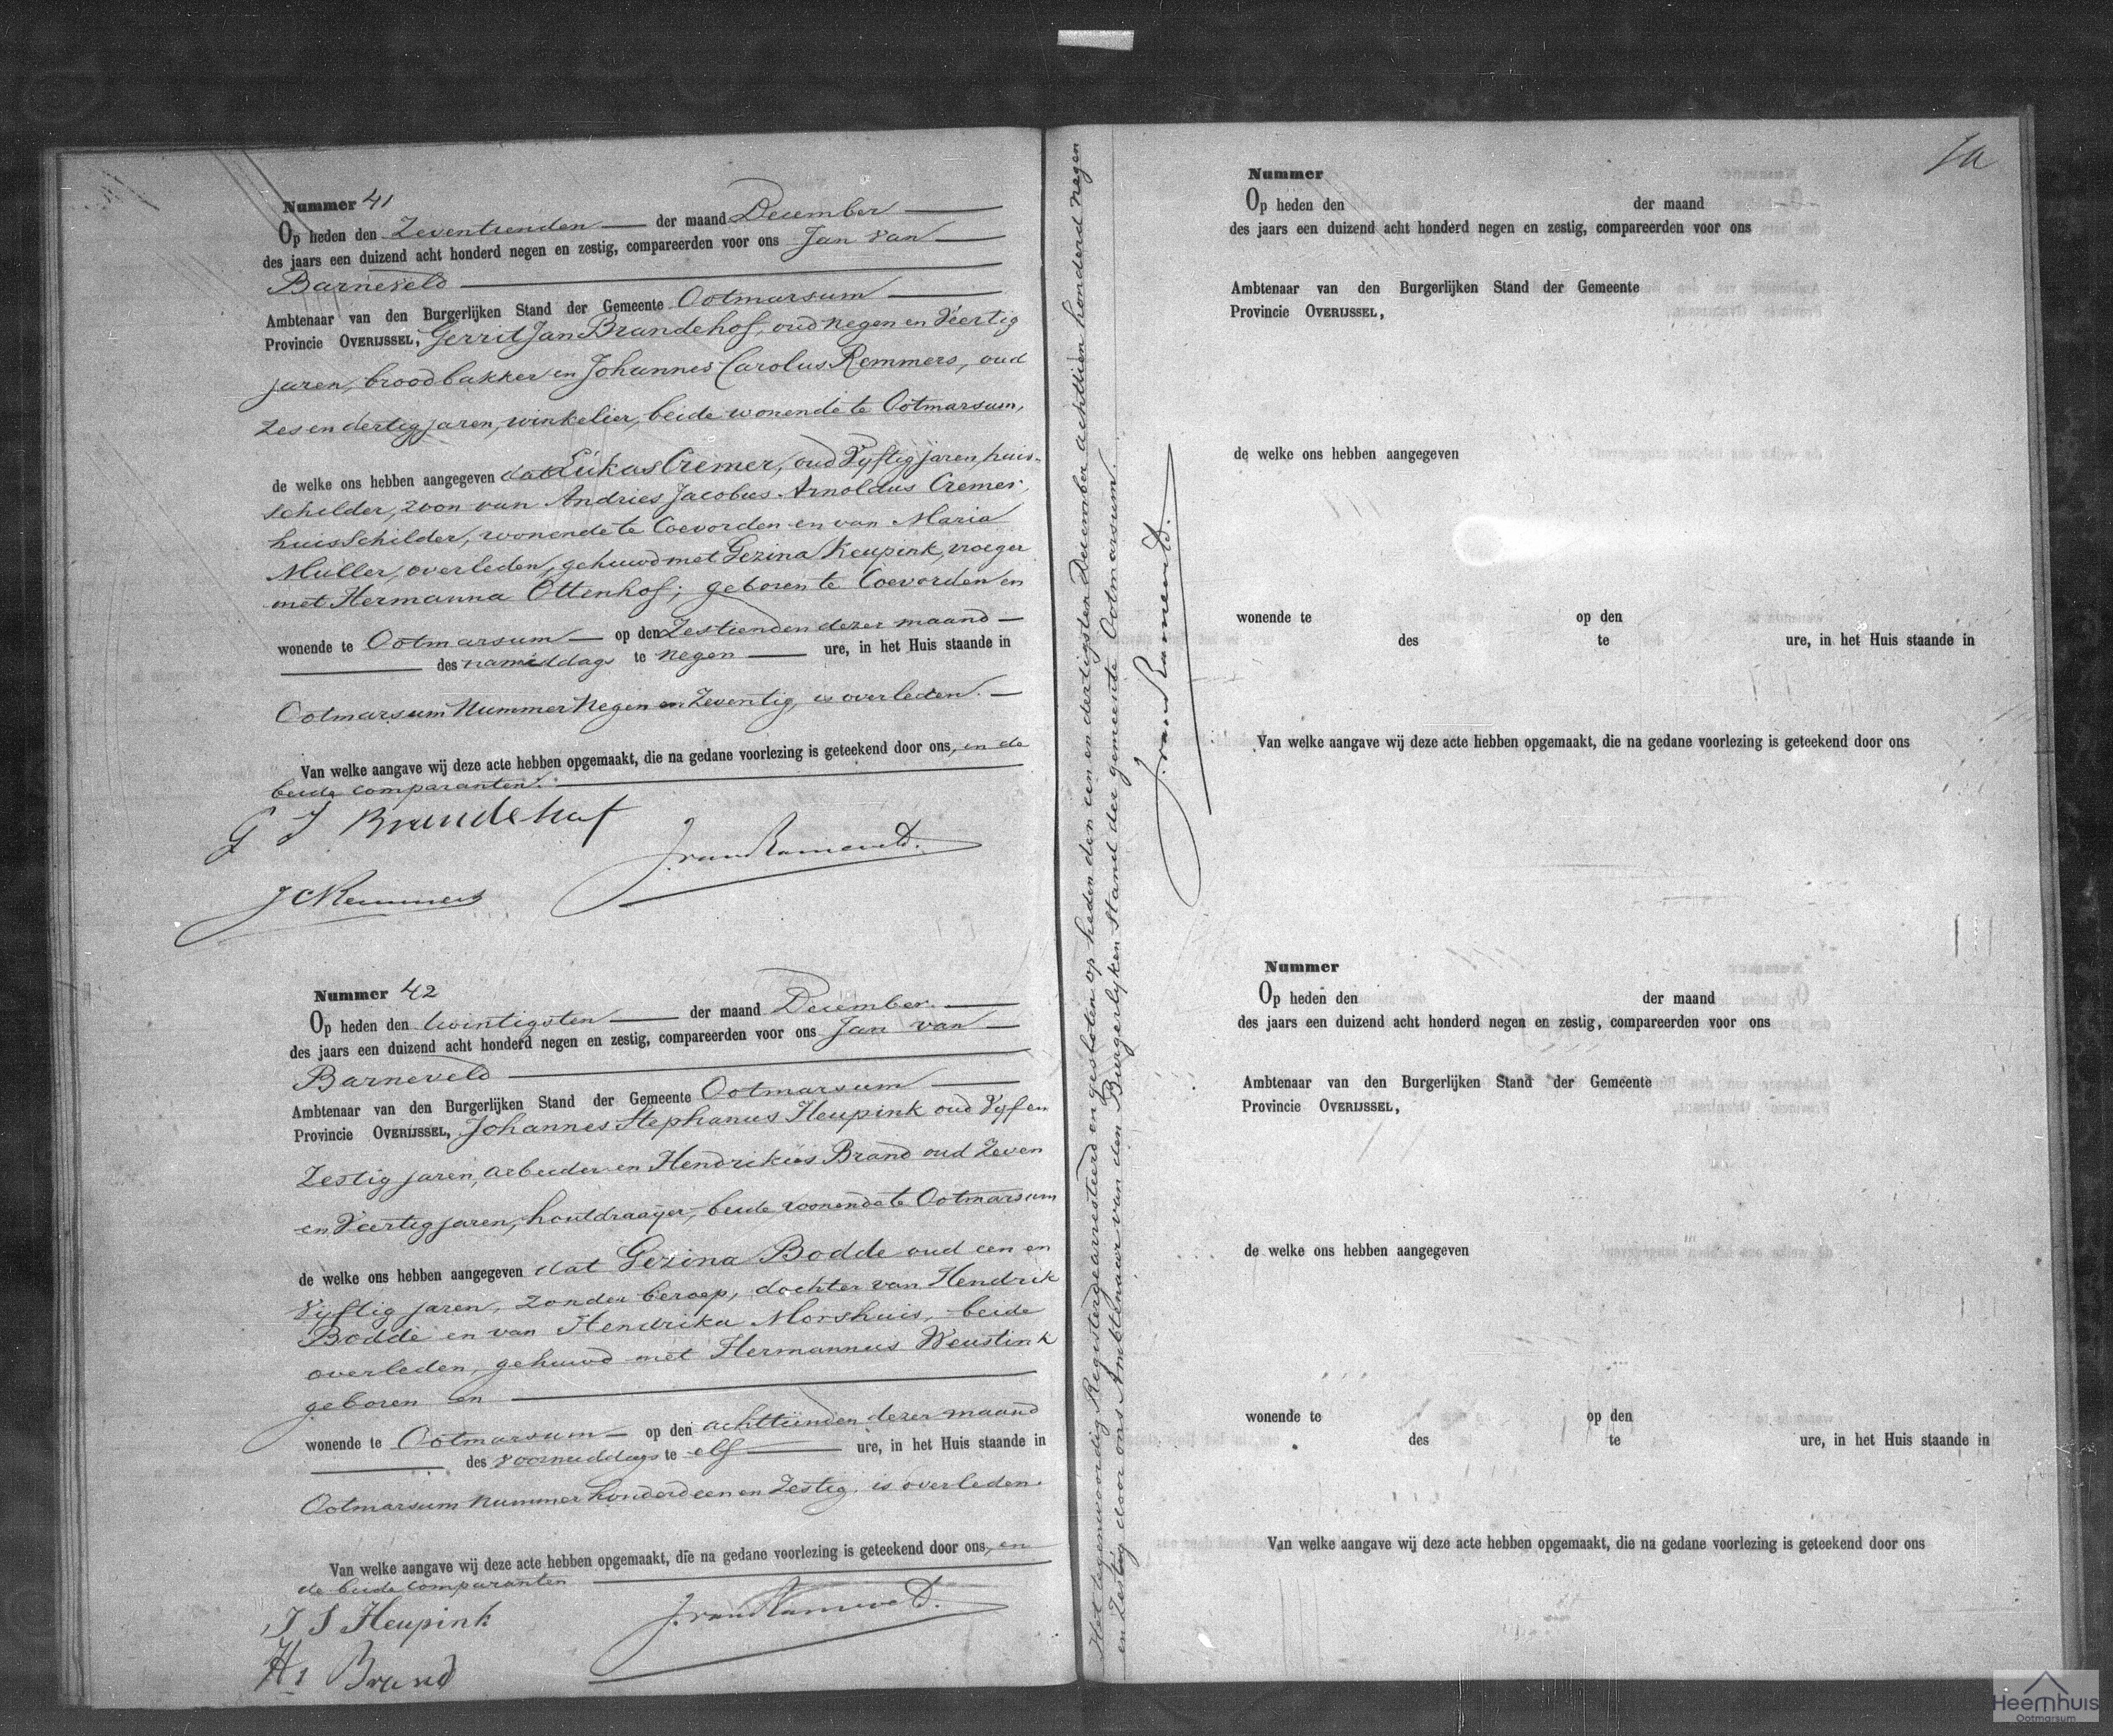 Nummer 41
Op heden den Zeventienden der maand December
des jaars een duizend acht honderd negen en zestig, compareerden voor ons Jan van
Barneveld
Ambtenaar van den Burgerlijken Stand der Gemeente Ootmarsum
Provincie OVERIJSSEL, Gerrit Jan Brandehof, oud negen en Veertig
jaren, broodbakker en Johannes Carolus Remmers, oud
zes en dertig jaren, winkelier, beide wonende te Ootmarsum,
de welke ons hebben aangegeven dat Lukas Cremer, oud Vyftig jaren, huis-
schilder, zoon van Andries Jacobus Arnoldus Cremer,
huisschilder, wonende te Coevorden en van Maria
Muller, overleden, gehuwd met Gezina Heupink, vroeger
met Hermanna Ottenhof; geboren te Coevorden en
wonende te Ootmarsum op den Zestienden dezer maand
des namiddags te negen ure, in het Huis staande in
Ootmarsum Nummer Negen en Zeventig, is overleden.
Van welke aangave wij deze acte hebben opgemaakt, die na gedane voorlezing is geteekend door ons, en de
beide comparanten.
G J Brandehof
J. van Barneveld.
J C Remmers
Nummer 42
Op heden den twintigsten der maand December
des jaars een duizend acht honderd negen en zestig, compareerden voor ons Jan van
Barneveld
Ambtenaar van den Burgerlijken Stand der Gemeente Ootmarsum
Provincie OVERIJSSEL, Johannes Stephanus Heupink oud Vyf en
Zestig jaren, arbeider en Hendrikus Brand oud Zeven
en Veertig jaren, houtdraayer, beide woonende te Ootmarsum
de welke ons hebben aangegeven dat Gezina Bodde oud een en
Vyftig jaren, zonder beroep, dochter van Hendrik
Bodde en van Hendrika Morshuis, beide
overleden, gehuwd met Hermannus Weustink
geboren en
wonende te Ootmarsum op den achttienden dezer maand
des voormiddags te elf ure, in het Huis staande in
Ootmarsum nummer honderd een en Zestig, is overleden.
Van welke aangave wij deze acte hebben opgemaakt, die na gedane voorlezing is geteekend door ons, en
de beide comparanten
J S Heupink
J. van Barneveld.
Hs Brand
Het tegenwoordig Register gearresteerd en gesloten op heden den een en dertigsten December achttien honderd negen
en Zestig door ons Ambtenaar van den Burgerlyken stand der gemeente Ootmarsum.
J. van Barneveld.
Nummer
Op heden den der maand
des jaars een duizend acht honderd negen en zestig, compareerden voor ons
Ambtenaar van den Burgerlijken Stand der Gemeente
Provincie OVERIJSSEL,
de welke ons hebben aangegeven
wonende te op den
des te ure, in het Huis staande in
Van welke aangave wij deze acte hebben opgemaakt, die na gedane voorlezing is geteekend door ons
Nummer
Op heden den der maand
des jaars een duizend acht honderd negen en zestig, compareerden voor ons
Ambtenaar van den Burgerlijken Stand der Gemeente
Provincie OVERIJSSEL,
de welke ons hebben aangegeven
wonende te op den
des te ure, in het Huis staande in
Van welke aangave wij deze acte hebben opgemaakt, die na gedane voorlezing is geteekend door ons
Heemhuis
Ootmarsum